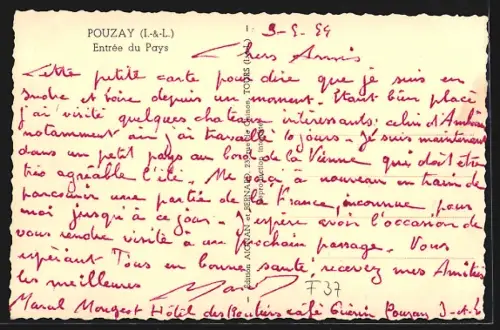 POUZAY (I.-&-L.)
Entrée du Pays
9-5-54
Chers Amis
Cette petite carte pour dire que je suis en
Indre et Loire depuis un moment. Etant bien placé
j'ai visité quelques chateaux intéressants. celui d'Amboise
notamment où j'ai travaillé 10 jours. Je suis maintenant
dans un petit pays au bord de la Vienne qui doit être
très agréable l'été. Me voici à nouveau en train de
parcourir une partie de la France, inconnue pour
moi jusqu'à ce jour. J'espère avoir l'occasion de
vous rendre visite à un prochain passage. Vous
espérant Tous en bonne santé, recevez mes Amitiés
les meilleures
Marcel
F37
Marcel Mougeot Hôtel des Routiers café Guérin Pouzay I-&-L
Edition AIGNAN et BERNARD, TOURS